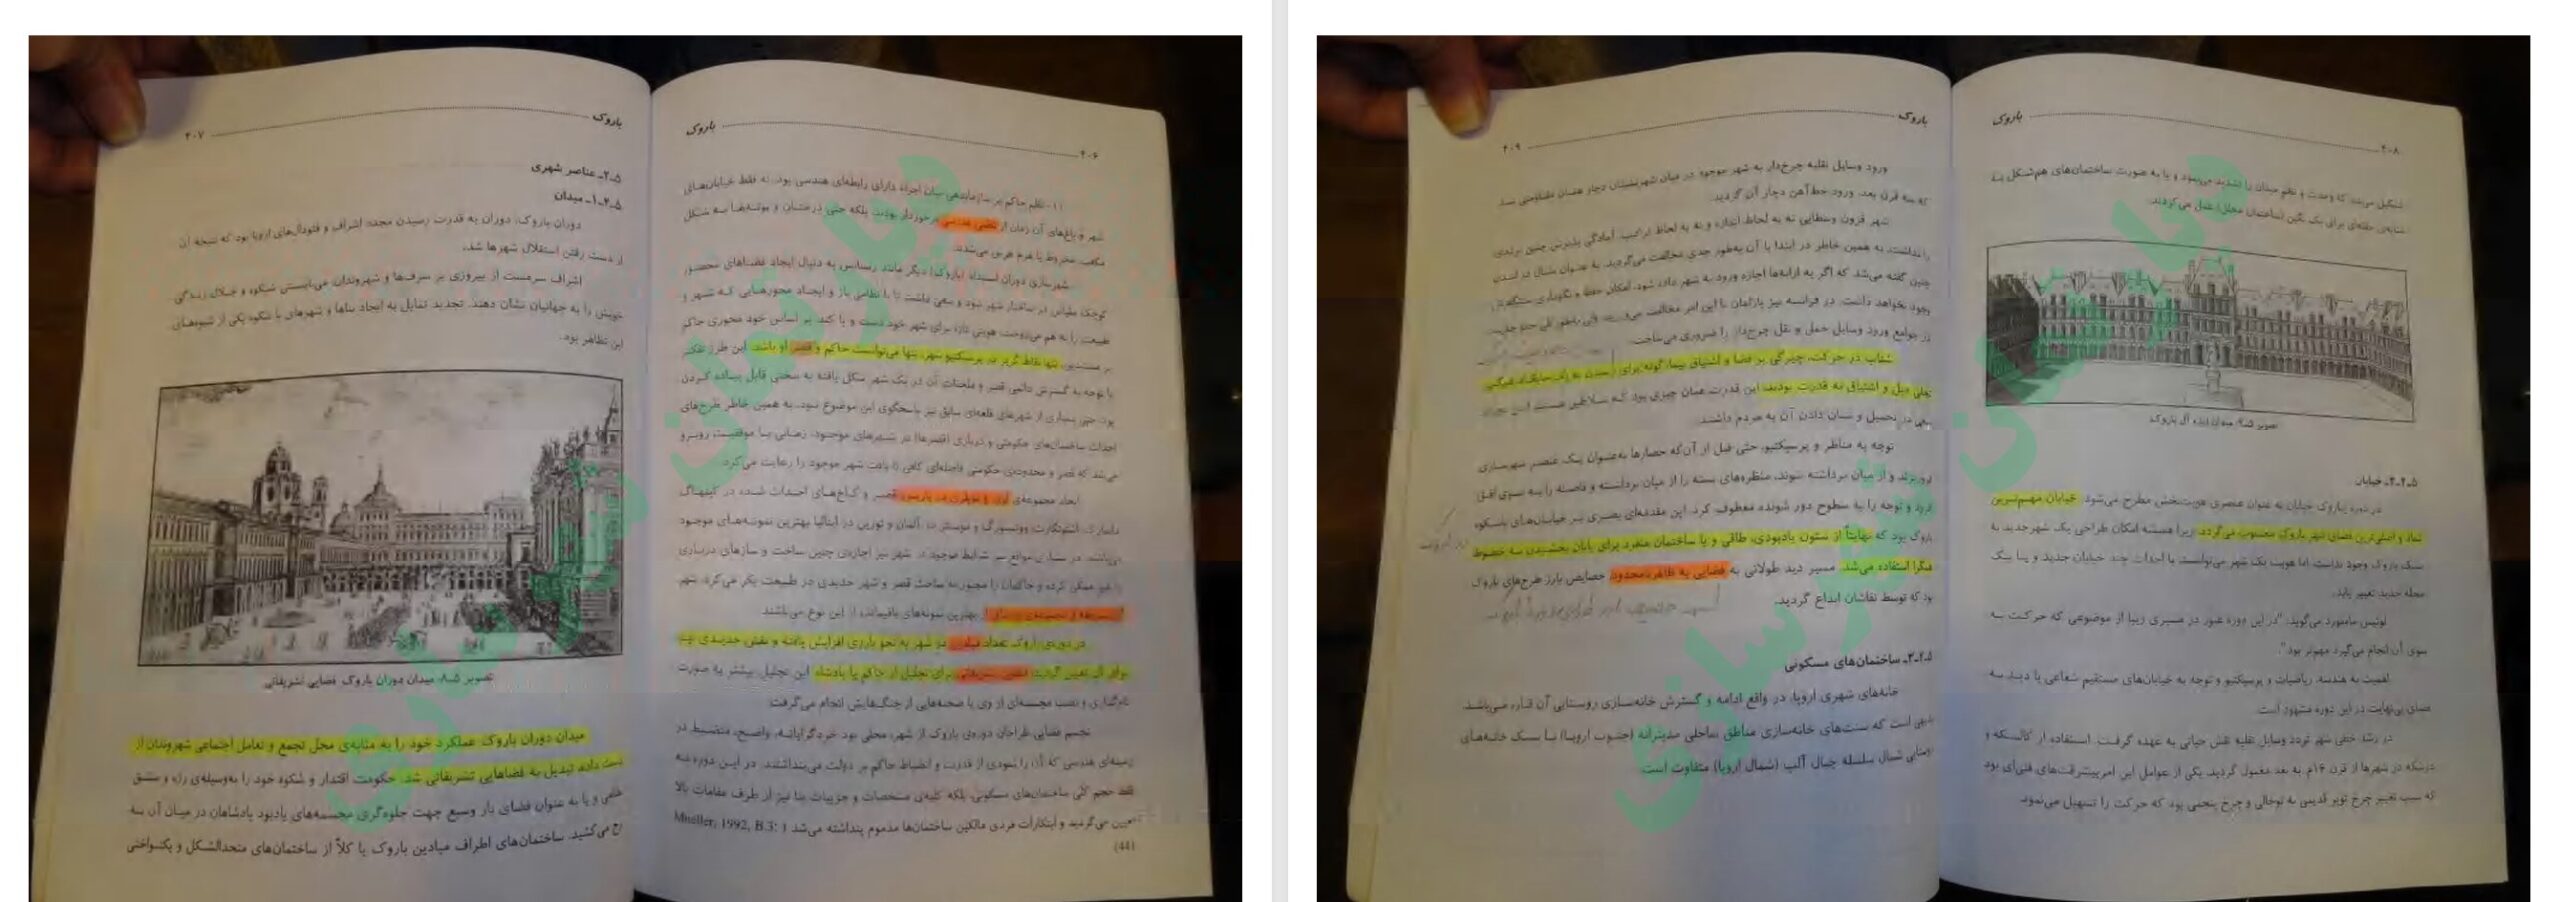 باروک
۲۰۶
۱۰- نظم حاکم بر سازماندهی میان اجزاء دارای رابطه‌ای هندسی بود. نه فقط خیابان‌های
شهر و باغ‌های آن زمان از نظمی هندسی برخوردار بودند، بلکه حتی درختان و بوته‌ها به شکل
مکعب، مخروط یا هرم هرس می‌شدند.
شهرسازی دوران استبداد (باروک) دیگر مانند رنسانس به دنبال ایجاد فضاهای محصور
کوچک مقیاس در ساختار شهر نبود و سعی داشت تا با نظامی باز و ایجاد محورهایی که شهر و
طبیعت را به هم می‌دوخت، هویتی تازه برای شهر خود دست و پا کند. بر اساس خود محوری حاکم
تنها نقاط گریز در پرسپکتیو شهر، تنها می‌توانست حاکم و قصر او باشد. این طرز تفکر
با توجه به گسترش دائمی قصر و ملحقات آن در یک شهر شکل یافته به سختی قابل پیاده کردن
بود. حتی بسیاری از شهرهای قلعه‌ای سابق نیز پاسخگوی این موضوع نبود. به همین خاطر طرح‌های
احداث ساختمان‌های حکومتی و درباری (قصرها) در شهرهای موجود، زمانی با موفقیت روبرو
می‌شد که قصر و محدوده‌ی حکومتی فاصله‌ای کافی تا بافت شهر موجود را رعایت می‌کرد.
ایجاد مجموعه‌ی لوور و تویلری در پاریس، قصر و کاخ‌های احداث شده در کپنهاگ
دانمارک، اشتوتگارت، وورتسبورگ و مونستر در آلمان و تورین در ایتالیا بهترین نمونه‌های موجود
می‌باشند. در بسیاری مواقع نیز شرایط موجود در شهر نیز اجازه‌ی چنین ساخت و سازهای درباری
را غیر ممکن کرده و حاکمان را مجبور به ساخت قصر و شهر جدیدی در طبیعت بکر می‌کرد. شهر
بهترین نمونه‌های باقیمانده از این نوع می‌باشند.
در دوره‌ی باروک تعداد میادین در شهر به نحو بارزی افزایش یافته و نقش جدیدی نیز
برای آن تعیین گردید: فضایی تشریفاتی برای تجلیل از حاکم یا پادشاه. این تجلیل بیشتر به صورت
نام‌گذاری و نصب مجسمه‌ای از وی یا صحنه‌هایی از جنگ‌هایش انجام می‌گرفت.
تجسم فضایی طراحان دوره‌ی باروک از شهر، محلی بود خردگرایانه، واضح، منضبط در
زمینه‌ای هندسی که آن را نمودی از قدرت و انضباط حاکم بر دولت می‌پنداشتند. در این دوره نه
فقط حجم کلی ساختمان‌های مسکونی، بلکه کلیه‌ی مشخصات و جزییات بنا نیز از طرف مقامات بالا
تعیین می‌گردید و ابتکارات فردی مالکین ساختمان‌ها مذموم پنداشته می‌شد ( Mueller, 1992, B.3:
44)
باروک
۲۰۷
۵-۲- عناصر شهری
۵-۲-۱- میدان
دوران باروک، دوران به قدرت رسیدن مجدد اشراف و فئودال‌های اروپا بود که نتیجه آن
از دست رفتن استقلال شهرها شد.
اشراف سرمست از پیروزی بر شهرها و شهروندان می‌بایستی شکوه و جلال زندگی
خویش را به جهانیان نشان دهند. تجدید تمایل به ایجاد بناها و شهرهای با شکوه یکی از شیوه‌های
این تظاهر بود.
تصویر ۵-۸- میدان دوران باروک، فضایی تشریفاتی
میدان دوران باروک عملکرد خود را به مثابه‌ی محل تجمع و تعامل اجتماعی شهروندان از
دست داده، تبدیل به فضاهایی تشریفاتی شد. حکومت اقتدار و شکوه خود را به‌وسیله‌ی رژه و مشق
نظامی و یا به عنوان فضای باز وسیع جهت جلوه‌گری مجسمه‌های یادبود پادشاهان در میان آن به
رخ می‌کشید. ساختمان‌های اطراف میادین باروک یا کلاً از ساختمان‌های متحدالشکل و یکنواختی
باروک
۲۰۸
تشکیل می‌شد که وحدت و نظم میدان را تشدید می‌نمود و یا به صورت ساختمان‌های هم‌شکل به
مثابه‌ی حلقه‌ای برای یک نگین (ساختمان مجلل) عمل می‌کردند.
تصویر ۵-۹- میدان ایده آل باروک
۵-۲-۲- خیابان
در دوره باروک خیابان به عنوان عنصری هویت‌بخش مطرح می‌شود. خیابان مهم‌ترین
نماد و اصلی‌ترین فضای شهر باروک محسوب می‌گردد. زیرا همیشه امکان طراحی یک شهر جدید به
سبک باروک وجود نداشت، اما هویت یک شهر می‌توانست با احداث چند خیابان جدید و یا یک
محله جدید تغییر یابد.
لوئیس مامفورد می‌گوید: "در این دوره عبور در مسیری زیبا از موضوعی که حرکت به
سوی آن انجام می‌گیرد مهم‌تر بود".
اهمیت به هندسه، ریاضیات و پرسپکتیو و توجه به خیابان‌های مستقیم شعاعی با دید به
فضای بی‌نهایت در این دوره مشهود است.
در رشد خطی شهر تردد وسایل نقلیه نقش حیاتی به عهده گرفت. استفاده از کالسکه و
درشکه در شهرها از قرن ۱۶م. به بعد معمول گردید. یکی از عوامل این امر پیشرفت‌های فنی‌ای بود
که سبب تغییر چرخ توپر قدیمی به توخالی و چرخ پنجمی بود که حرکت را تسهیل می‌نمود.
باروک
۲۰۹
ورود وسایل نقلیه چرخ‌دار به شهر موجود در میان شهرنشینان دچار همان مقاومتی شد
که سه قرن بعد، ورود خط‌آهن دچار آن گردید.
شهر قرون وسطایی نه به لحاظ اندازه و نه به لحاظ ترکیب، آمادگی پذیرش چنین برنامه‌ای
را نداشت. به همین خاطر در ابتدا با آن به‌طور جدی مخالفت می‌گردید. به عنوان مثال در لندن
چنین گفته می‌شد که اگر به ارابه‌ها اجازه ورود به شهر داده شود، امکان حفظ و نگهداری سنگفرش
وجود نخواهد داشت. در فرانسه نیز پارلمان با این امر مخالفت
در جوامع ورود وسایل حمل و نقل چرخ‌دار را ضروری می‌ساخت.
شتاب در حرکت، چیرگی بر فضا و اشتیاق بیمارگونه برای رسیدن به
تجلی میل و اشتیاق به قدرت بودند. این قدرت همان چیزی بود که سلاطین
سعی در تحصیل و نشان دادن آن به مردم داشتند.
توجه به مناظر و پرسپکتیو، حتی قبل از آن‌که حصارها به‌عنوان یک عنصر شهرسازی
فرو ریزند و از میان برداشته شوند، منظره‌های بسته را از میان برداشته و فاصله را به سوی افق
برد و توجه را به سطوح دور شونده معطوف کرد. این مقدمه‌ای بصری بر خیابان‌های باشکوه
باروک بود که نهایتاً از ستون یادبودی، طاقی و یا ساختمان منفرد برای پایان بخشیدن به خطوط
همگرا استفاده می‌شد. مسیر دید طولانی به فضایی به ظاهر محدود، خصایص بارز طرح‌های باروک
بود که توسط نقاشان ابداع گردید.
۵-۲-۳- ساختمان‌های مسکونی
خانه‌های شهری اروپا، در واقع ادامه و گسترش خانه‌سازی روستایی آن قاره می‌باشد.
بدیهی است که سنت‌های خانه‌سازی مناطق ساحلی مدیترانه (جنوب اروپا) با سبک خانه‌های
روستایی شمال سلسله جبال آلپ (شمال اروپا) متفاوت است.